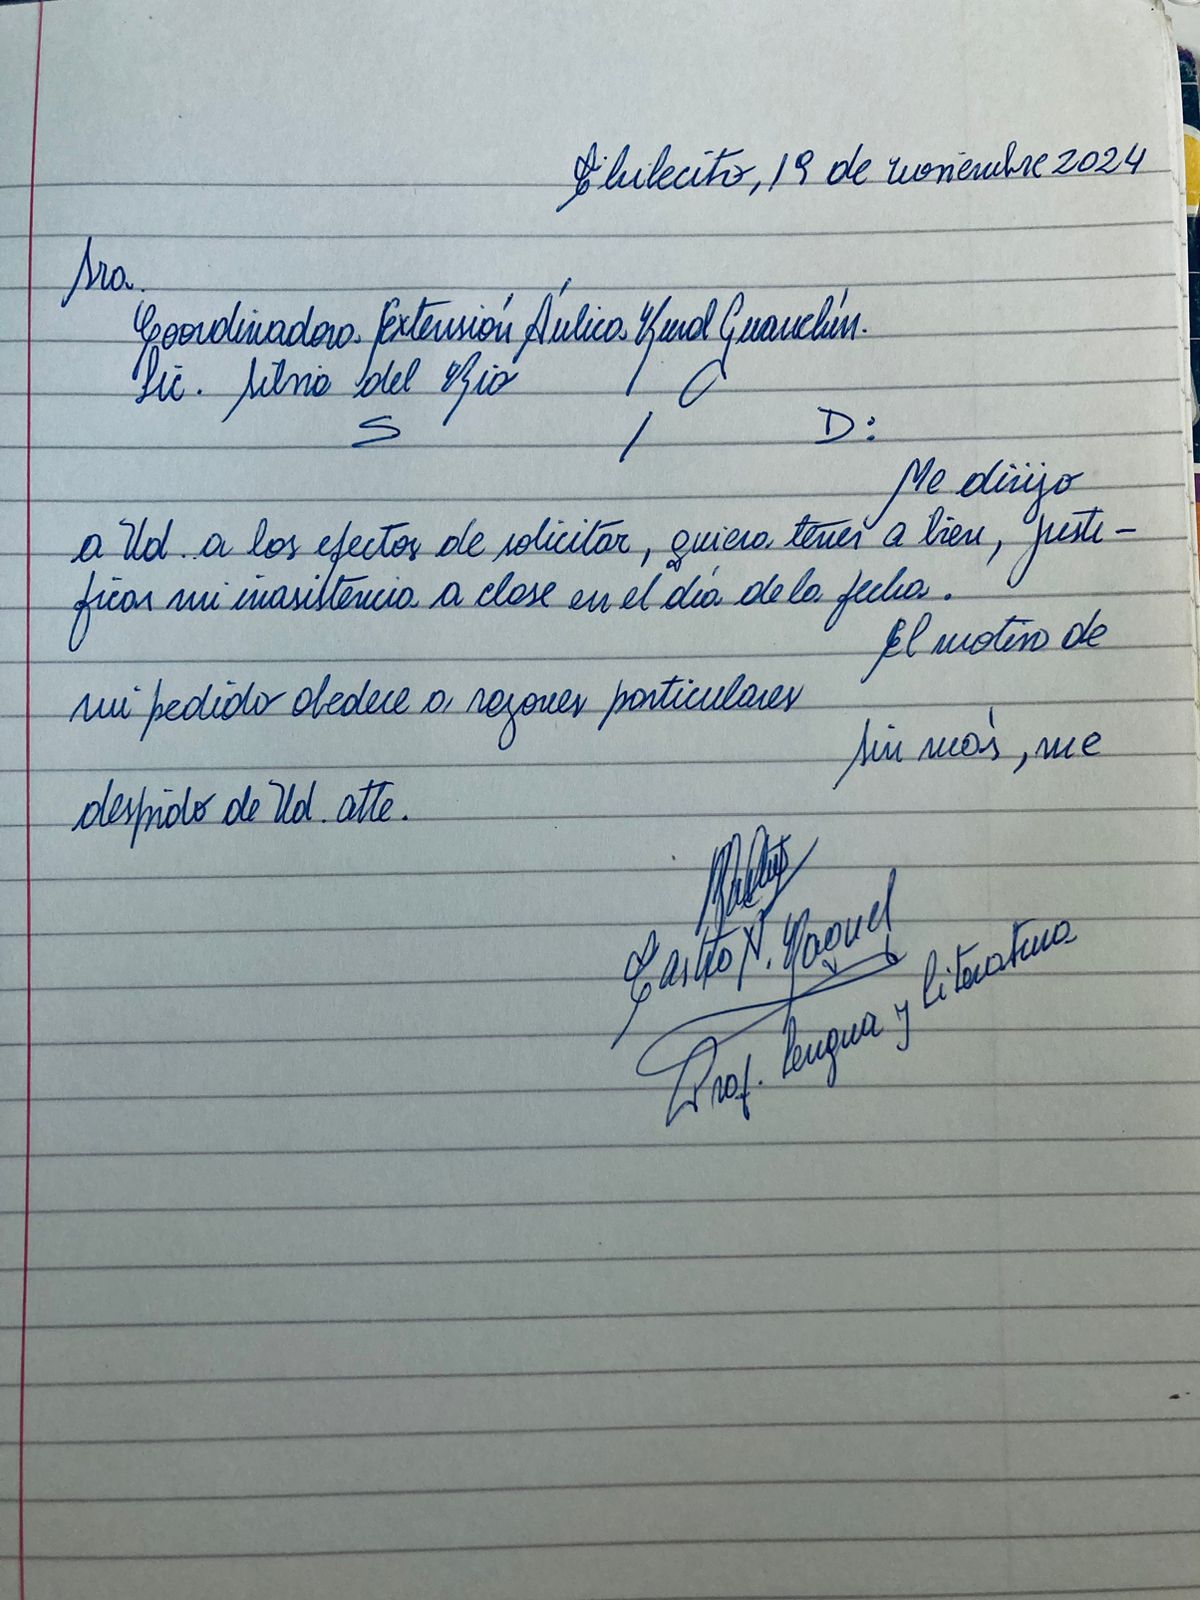 Chilecito, 19 de noviembre 2024
Sra.
Coordinadora Extensión Áulica Rural Guanchín.
Lic. Silvia del Río / C
S / D:
Me dirijo
a Ud. a los efectos de solicitar, quiera tener a bien, justi-
ficar mi inasistencia a clase en el día de la fecha.
El motivo de
mi pedido obedece a razones particulares
Sin más, me
despido de Ud. atte.
Castro N. Raquel
Prof. Lengua y Literatura